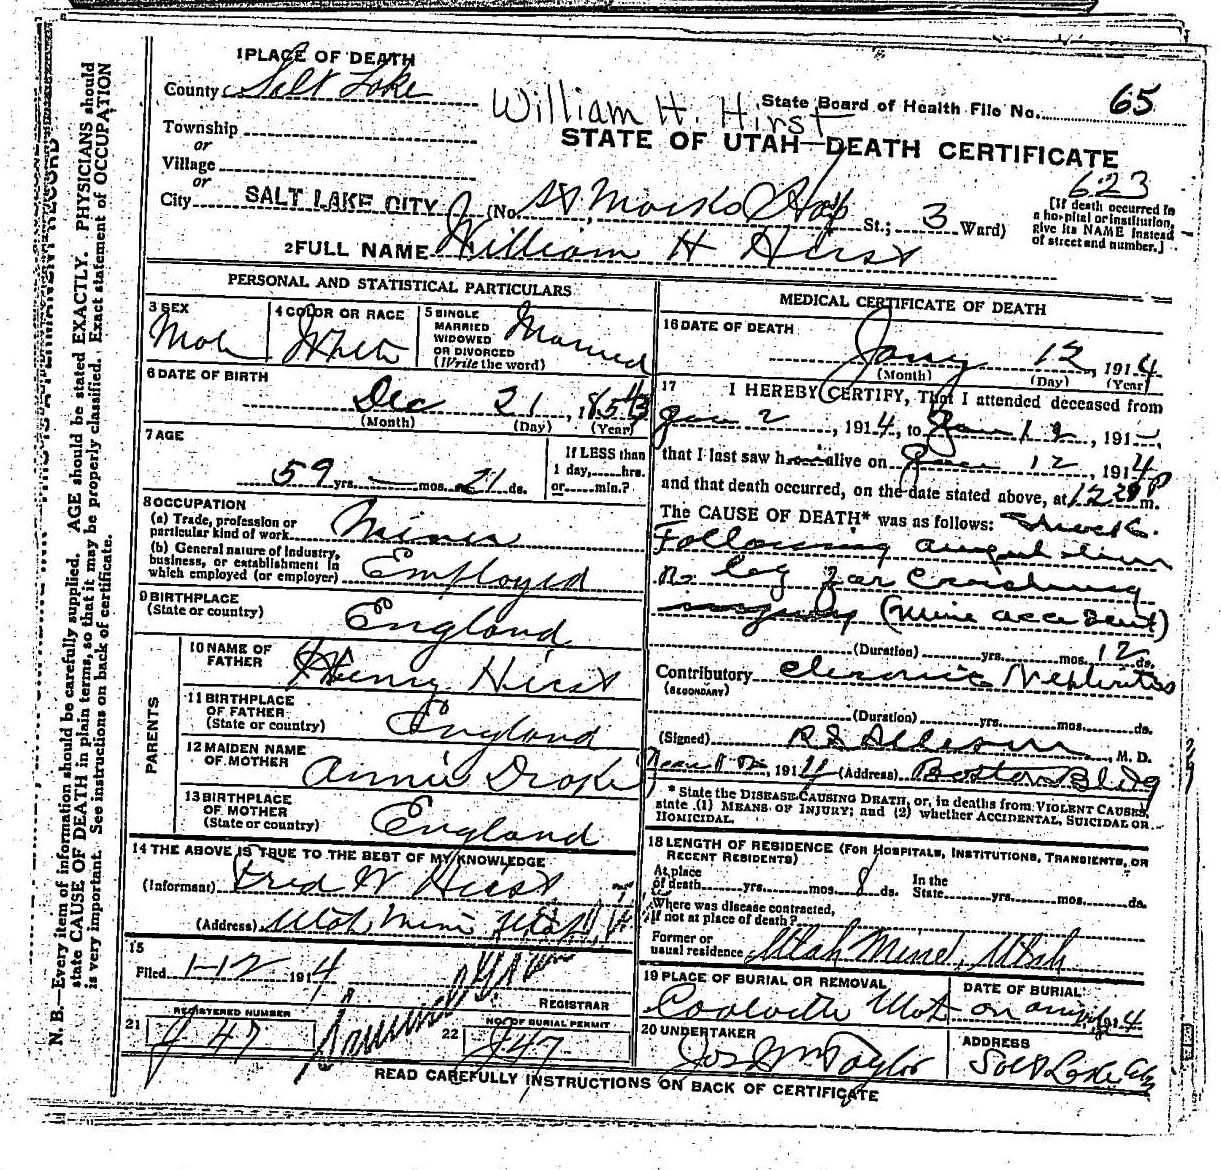 1 PLACE OF DEATH
County Salt Lake
William H. Hirst
State Board of Health File No. 65
Township
or
Village
or
STATE OF UTAH—DEATH CERTIFICATE
623
City SALT LAKE CITY (No. St Marks Hosp St.; 3 Ward)
[If death occurred in a hospital or institution, give its NAME instead of street and number.]
2 FULL NAME William H Hirst
PERSONAL AND STATISTICAL PARTICULARS
3 SEX
Male
4 COLOR OR RACE
White
5 SINGLE
MARRIED
WIDOWED
OR DIVORCED
(Write the word)
Married
6 DATE OF BIRTH
Dec 21, 185
(Month) (Day) (Year)
7 AGE
59 yrs. — mos. 21 ds.
If LESS than
1 day,......hrs.
or......min.?
8 OCCUPATION
(a) Trade, profession or
particular kind of work Miner
(b) General nature of industry,
business, or establishment in
which employed (or employer) Employed
9 BIRTHPLACE
(State or country) England
PARENTS
10 NAME OF
FATHER Henry Hirst
11 BIRTHPLACE
OF FATHER
(State or country) England
12 MAIDEN NAME
OF MOTHER Annie Drake
13 BIRTHPLACE
OF MOTHER
(State or country) England
14 THE ABOVE IS TRUE TO THE BEST OF MY KNOWLEDGE
(Informant) Fred W Hirst
(Address) Utah Mine Utah
15
Filed 1-12 1914
REGISTRAR
21 REGISTERED NUMBER
J 47
22 NO. OF BURIAL PERMIT
J47
MEDICAL CERTIFICATE OF DEATH
16 DATE OF DEATH
Jany 12, 1914
(Month) (Day) (Year)
17 I HEREBY CERTIFY, That I attended deceased from
Jan 2, 1914, to Jan 12, 191—,
that I last saw him alive on Jan 12 1914
and that death occurred, on the date stated above, at 12 P m.
The CAUSE OF DEATH* was as follows: Shock
Following amputation
leg for Crushing
injury (mine accident)
(Duration) yrs. mos. 12 ds.
Contributory chronic Nephritis
(SECONDARY)
(Duration) yrs. mos. ds.
(Signed) Allison, M. D.
1914 (Address) Boston Bldg
* State the DISEASE CAUSING DEATH, or, in deaths from VIOLENT CAUSES, state (1) MEANS OF INJURY; and (2) whether ACCIDENTAL, SUICIDAL OR HOMICIDAL.
18 LENGTH OF RESIDENCE (FOR HOSPITALS, INSTITUTIONS, TRANSIENTS, OR RECENT RESIDENTS)
At place
of death yrs. mos. ds. In the
State yrs. mos. ds.
Where was disease contracted,
If not at place of death?
Former or
usual residence Utah Mine, Utah
19 PLACE OF BURIAL OR REMOVAL
Coalville Utah
DATE OF BURIAL
on 1914
20 UNDERTAKER
Jos Wm Taylor
ADDRESS
Salt Lake City
READ CAREFULLY INSTRUCTIONS ON BACK OF CERTIFICATE
N. B.—Every item of information should be carefully supplied. AGE should be stated EXACTLY. PHYSICIANS should
state CAUSE OF DEATH in plain terms, so that it may be properly classified. Exact statement of OCCUPATION
is very important. See instructions on back of certificate.